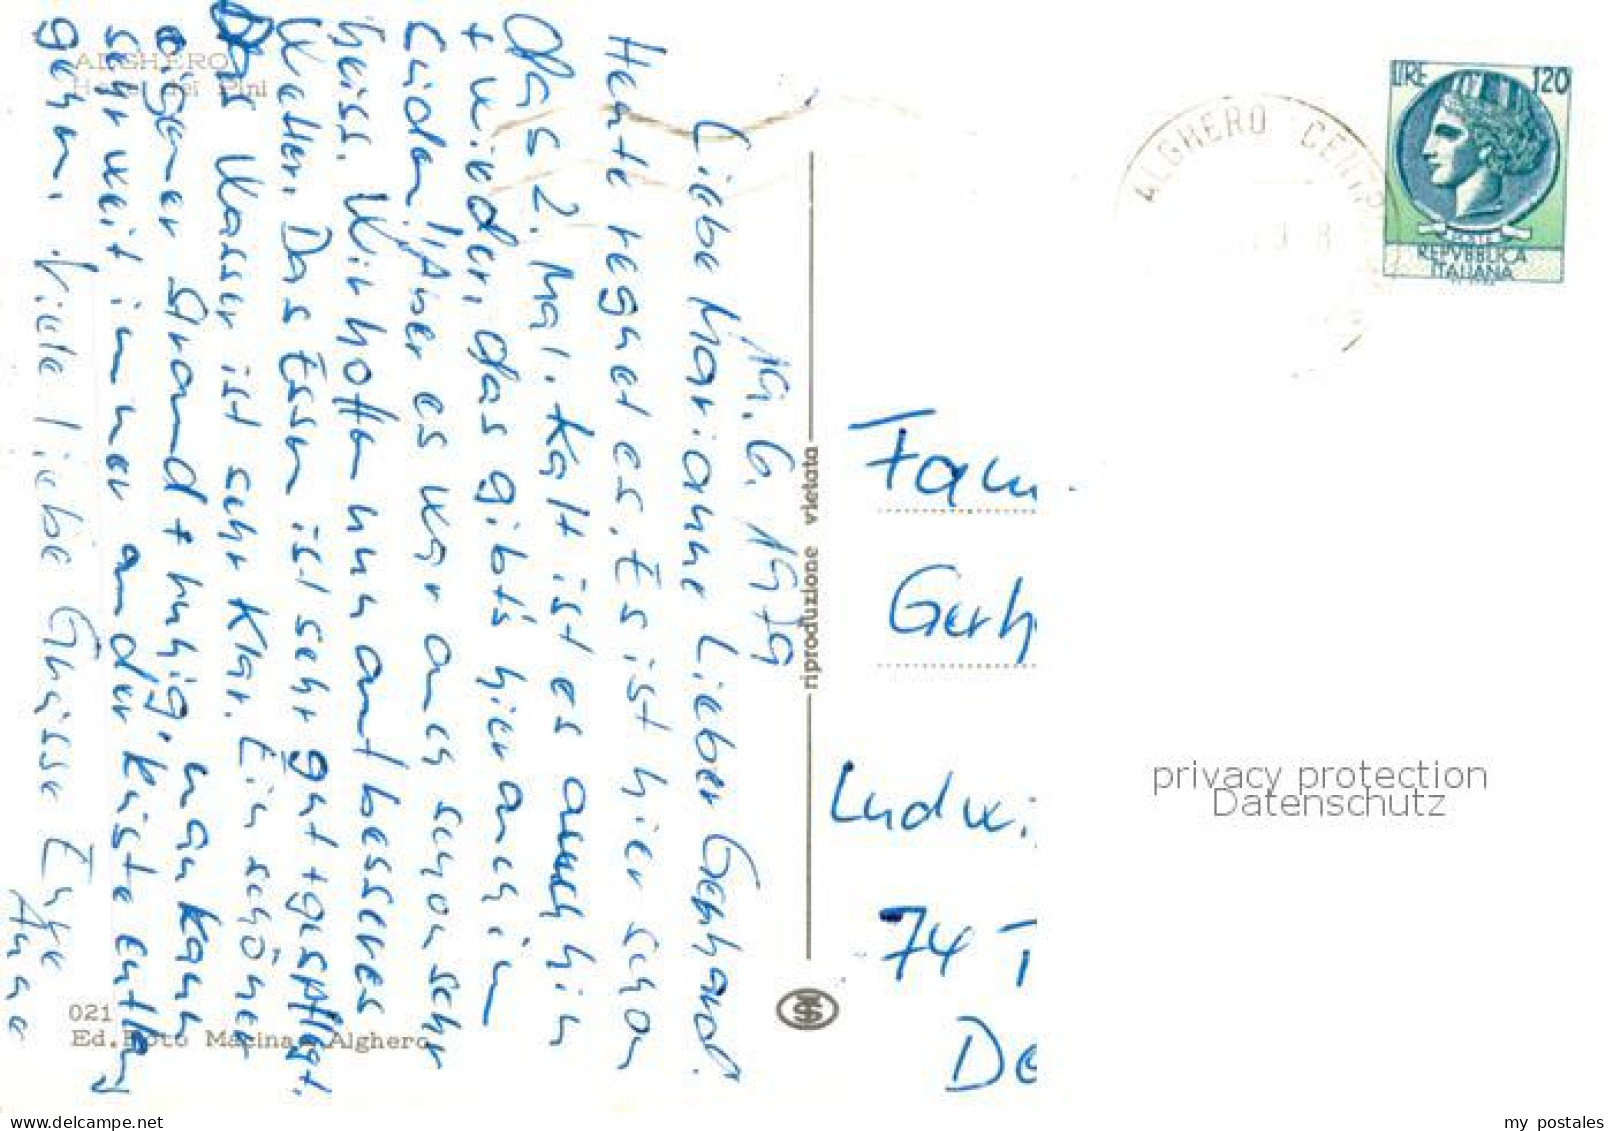 ALGHERO
Hotel dei Pini
19.6.1979
Liebe Marianne Lieber Gerhard.
Heute regnet es. Es ist hier schon
das 2. Mal. Kalt ist es auch hin
+ wieder, das gibt's hier auch im
Süden! Aber es war auch schon sehr
heiss. Wir hoffen nun auf besseres
Wetter. Das Essen ist sehr gut + gepflegt.
Das Wasser ist sehr klar. Ein schöner
eigener Strand + ruhig, man kann
sehr weit immer an der Küste entlang
gehn. Viele liebe Grüsse Eure
Anne
021
Ed. Foto Macina - Alghero
riproduzione vietata
LIRE 120
POSTE
REPVBBLICA
ITALIANA
ALGHERO
Fam
Gerh
Ludwi
74 T
De
privacy protection
Datenschutz
www.delcampe.net
my_postales